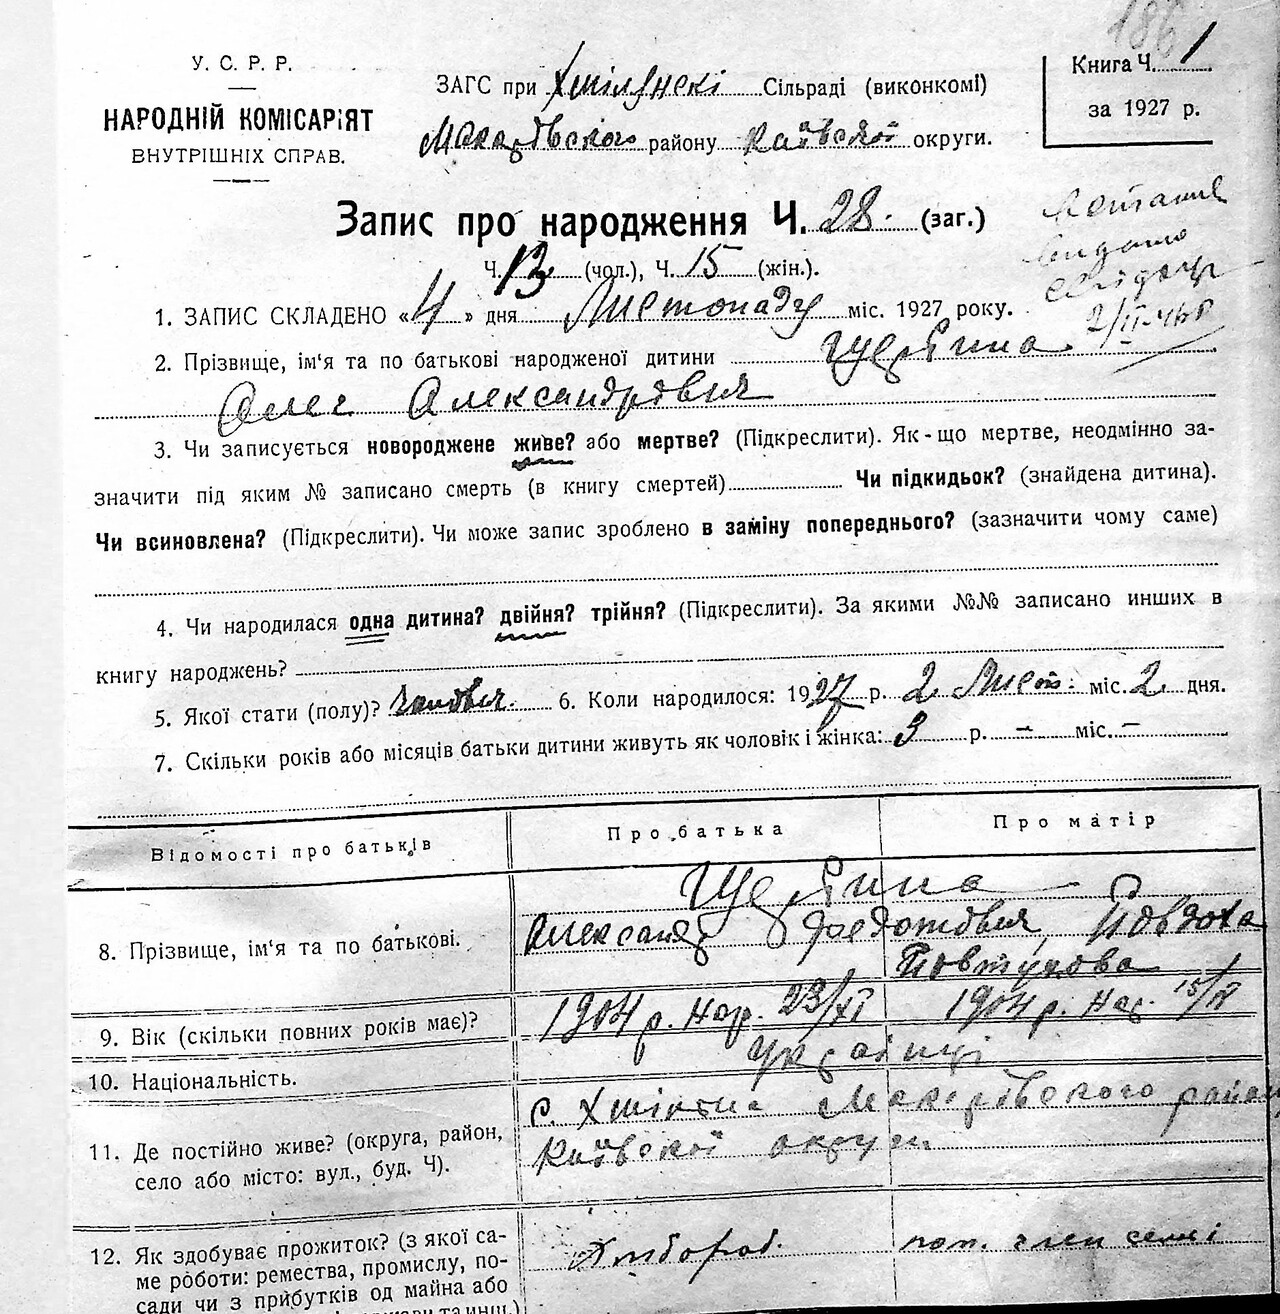 186
У. С. Р. Р.
НАРОДНІЙ КОМІСАРІЯТ
ВНУТРІШНІХ СПРАВ.
ЗАГС при Сільраді (виконкомі)
Макарівського району Київської округи.
Книга Ч. 1
за 1927 р.
Запис про народження Ч. 28. (заг.)
Ч. 13 (чол.), Ч. 15 (жін.).
видано
1. ЗАПИС СКЛАДЕНО «4» дня Листопаду міс. 1927 року.
2. Прізвище, ім‘я та по батькові народженої дитини
Олег Александрович
3. Чи записується новороджене живе? або мертве? (Підкреслити). Як-що мертве, неодмінно за-
значити під яким № записано смерть (в книгу смертей) Чи підкидьок? (знайдена дитина).
Чи всиновлена? (Підкреслити). Чи може запис зроблено в заміну попереднього? (зазначити чому саме)
4. Чи народилася одна дитина? двійня? трійня? (Підкреслити). За якими №№ записано инших в
книгу народжень?
5. Якої стати (полу)? 6. Коли народилося: 1927 р. 2 Лист. міс. 2 дня.
7. Скільки років або місяців батьки дитини живуть як чоловік і жінка: 3 р. – міс. –
Відомості про батьків
Про батька
Про матір
8. Прізвище, ім‘я та по батькові.
Александр Федотович Явдоха
9. Вік (скільки повних років має)?
1904 р. нар. 23/XI
1904 р. нар. 15/IV
10. Національність.
Українці
11. Де постійно живе? (округа, район,
село або місто: вул., буд. Ч).
с. Макарівського району
Київської округи
12. Як здобуває прожиток? (з якої са-
ме роботи: ремества, промислу, по-
сади чи з прибутків од майна або
Хлібороб.
пом. член семї